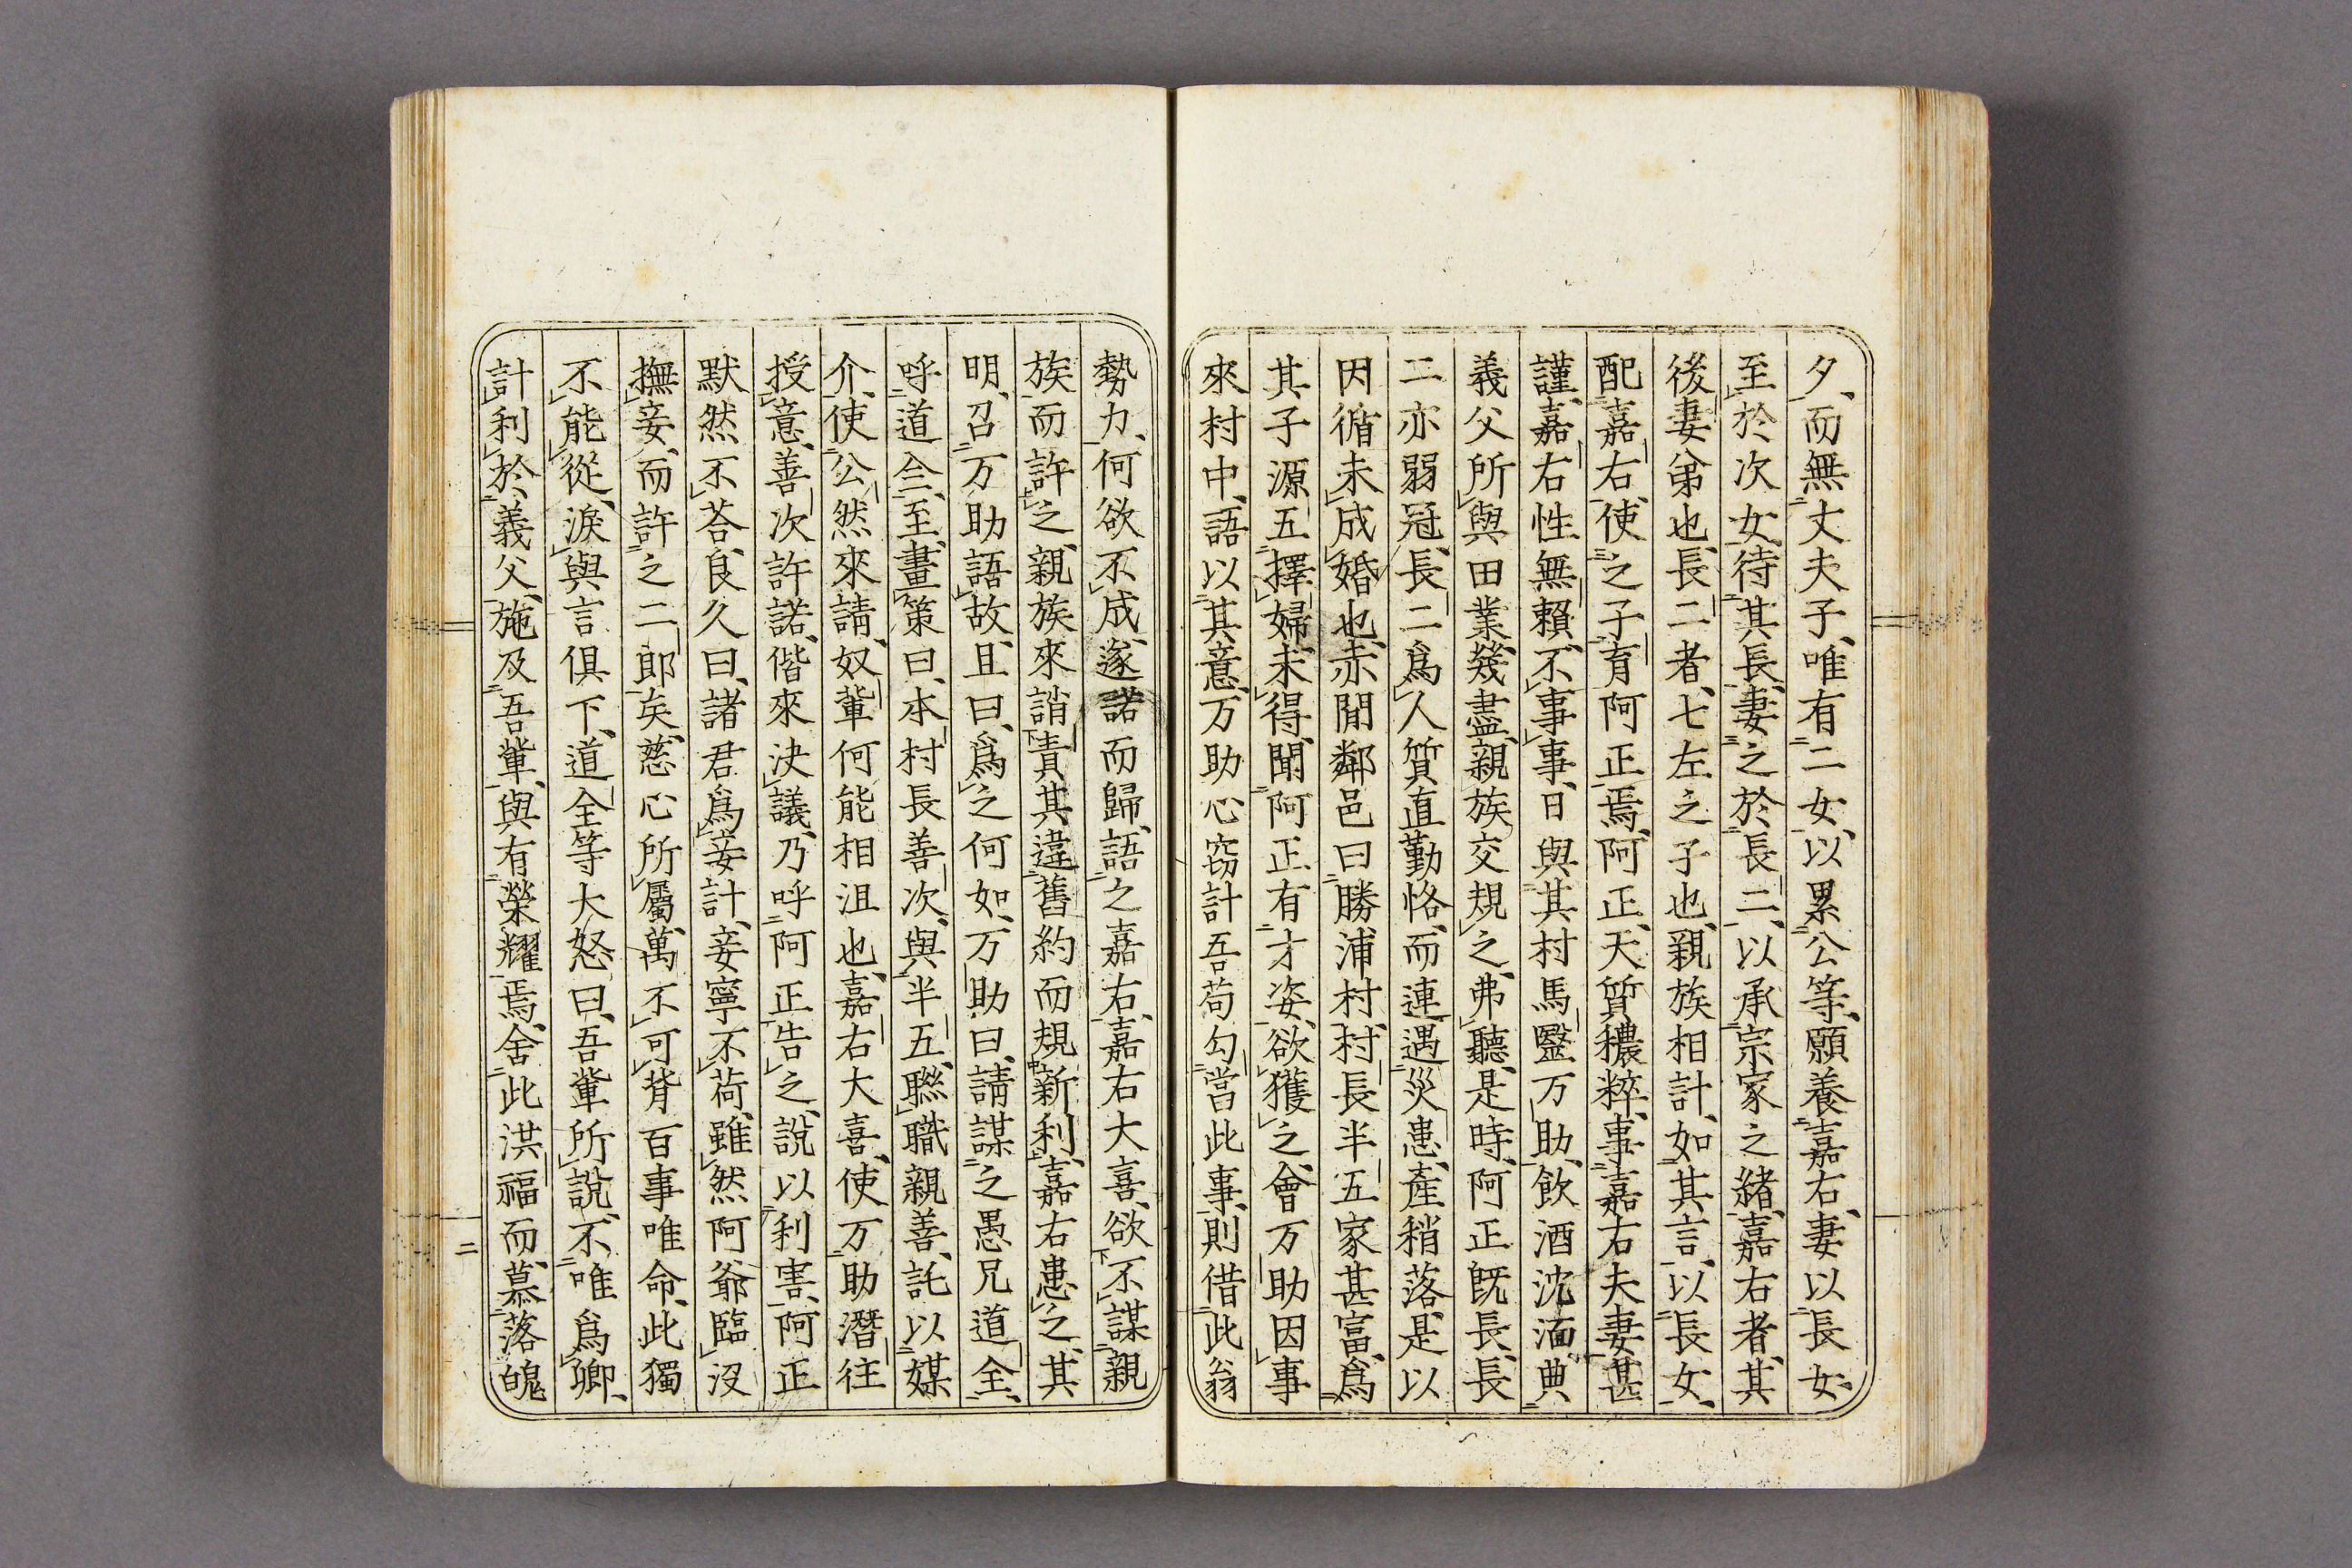 夕、而無丈夫子、唯有二女、以累公等、願養嘉右、妻以長女
至於次女、待其長、妻之於長二、以承宗家之緒、嘉右者、其
後妻弟也、長二者、七左之子也、親族相計、如其言、以長女、
配嘉右、使之子育阿正焉、阿正、天質穠粹、事嘉右夫妻甚
謹、嘉右性無賴、不事事、日與其村馬醫万助、飲酒沈湎、典
義父所與田業幾盡、親族交規之、弗聽、是時、阿正既長、長
二亦弱冠、長二爲人質直勤恪、而連遇災患、產稍落、是以
因循未成婚也、赤間鄰邑曰勝浦村、村長半五家甚富、爲
其子源五擇婦、未得、聞阿正有才姿、欲獲之、會万助因事
來村中、語以其意、万助心竊計吾苟勾當此事、則借此翁
勢力、何欲不成、遂諾而歸、語之嘉右、嘉右大喜、欲不謀親
族而許之、親族來誚責其違舊約而規新利、嘉右患之、其
明、召万助語故、且曰、爲之何如、万助曰、請謀之愚兄道全、
呼道仝至、畫策曰、本村長善次、與半五、聯職親善、託以媒
介、使公然來請、奴輩何能相沮也、嘉右大喜、使万助潛往
授意、善次許諾、偕來決議、乃呼阿正告之、說以利害、阿正
默然不荅、良久曰、諸君爲妾計、妾寧不荷、雖然阿爺臨沒
撫妾、而許之二郎矣、慈心所屬、萬不可背、百事唯命、此獨
不能從、淚與言俱下、道全等大怒曰、吾輩所說、不唯爲卿、
計利於義父、施及吾輩、與有榮耀焉、舍此洪福而慕落魄
二